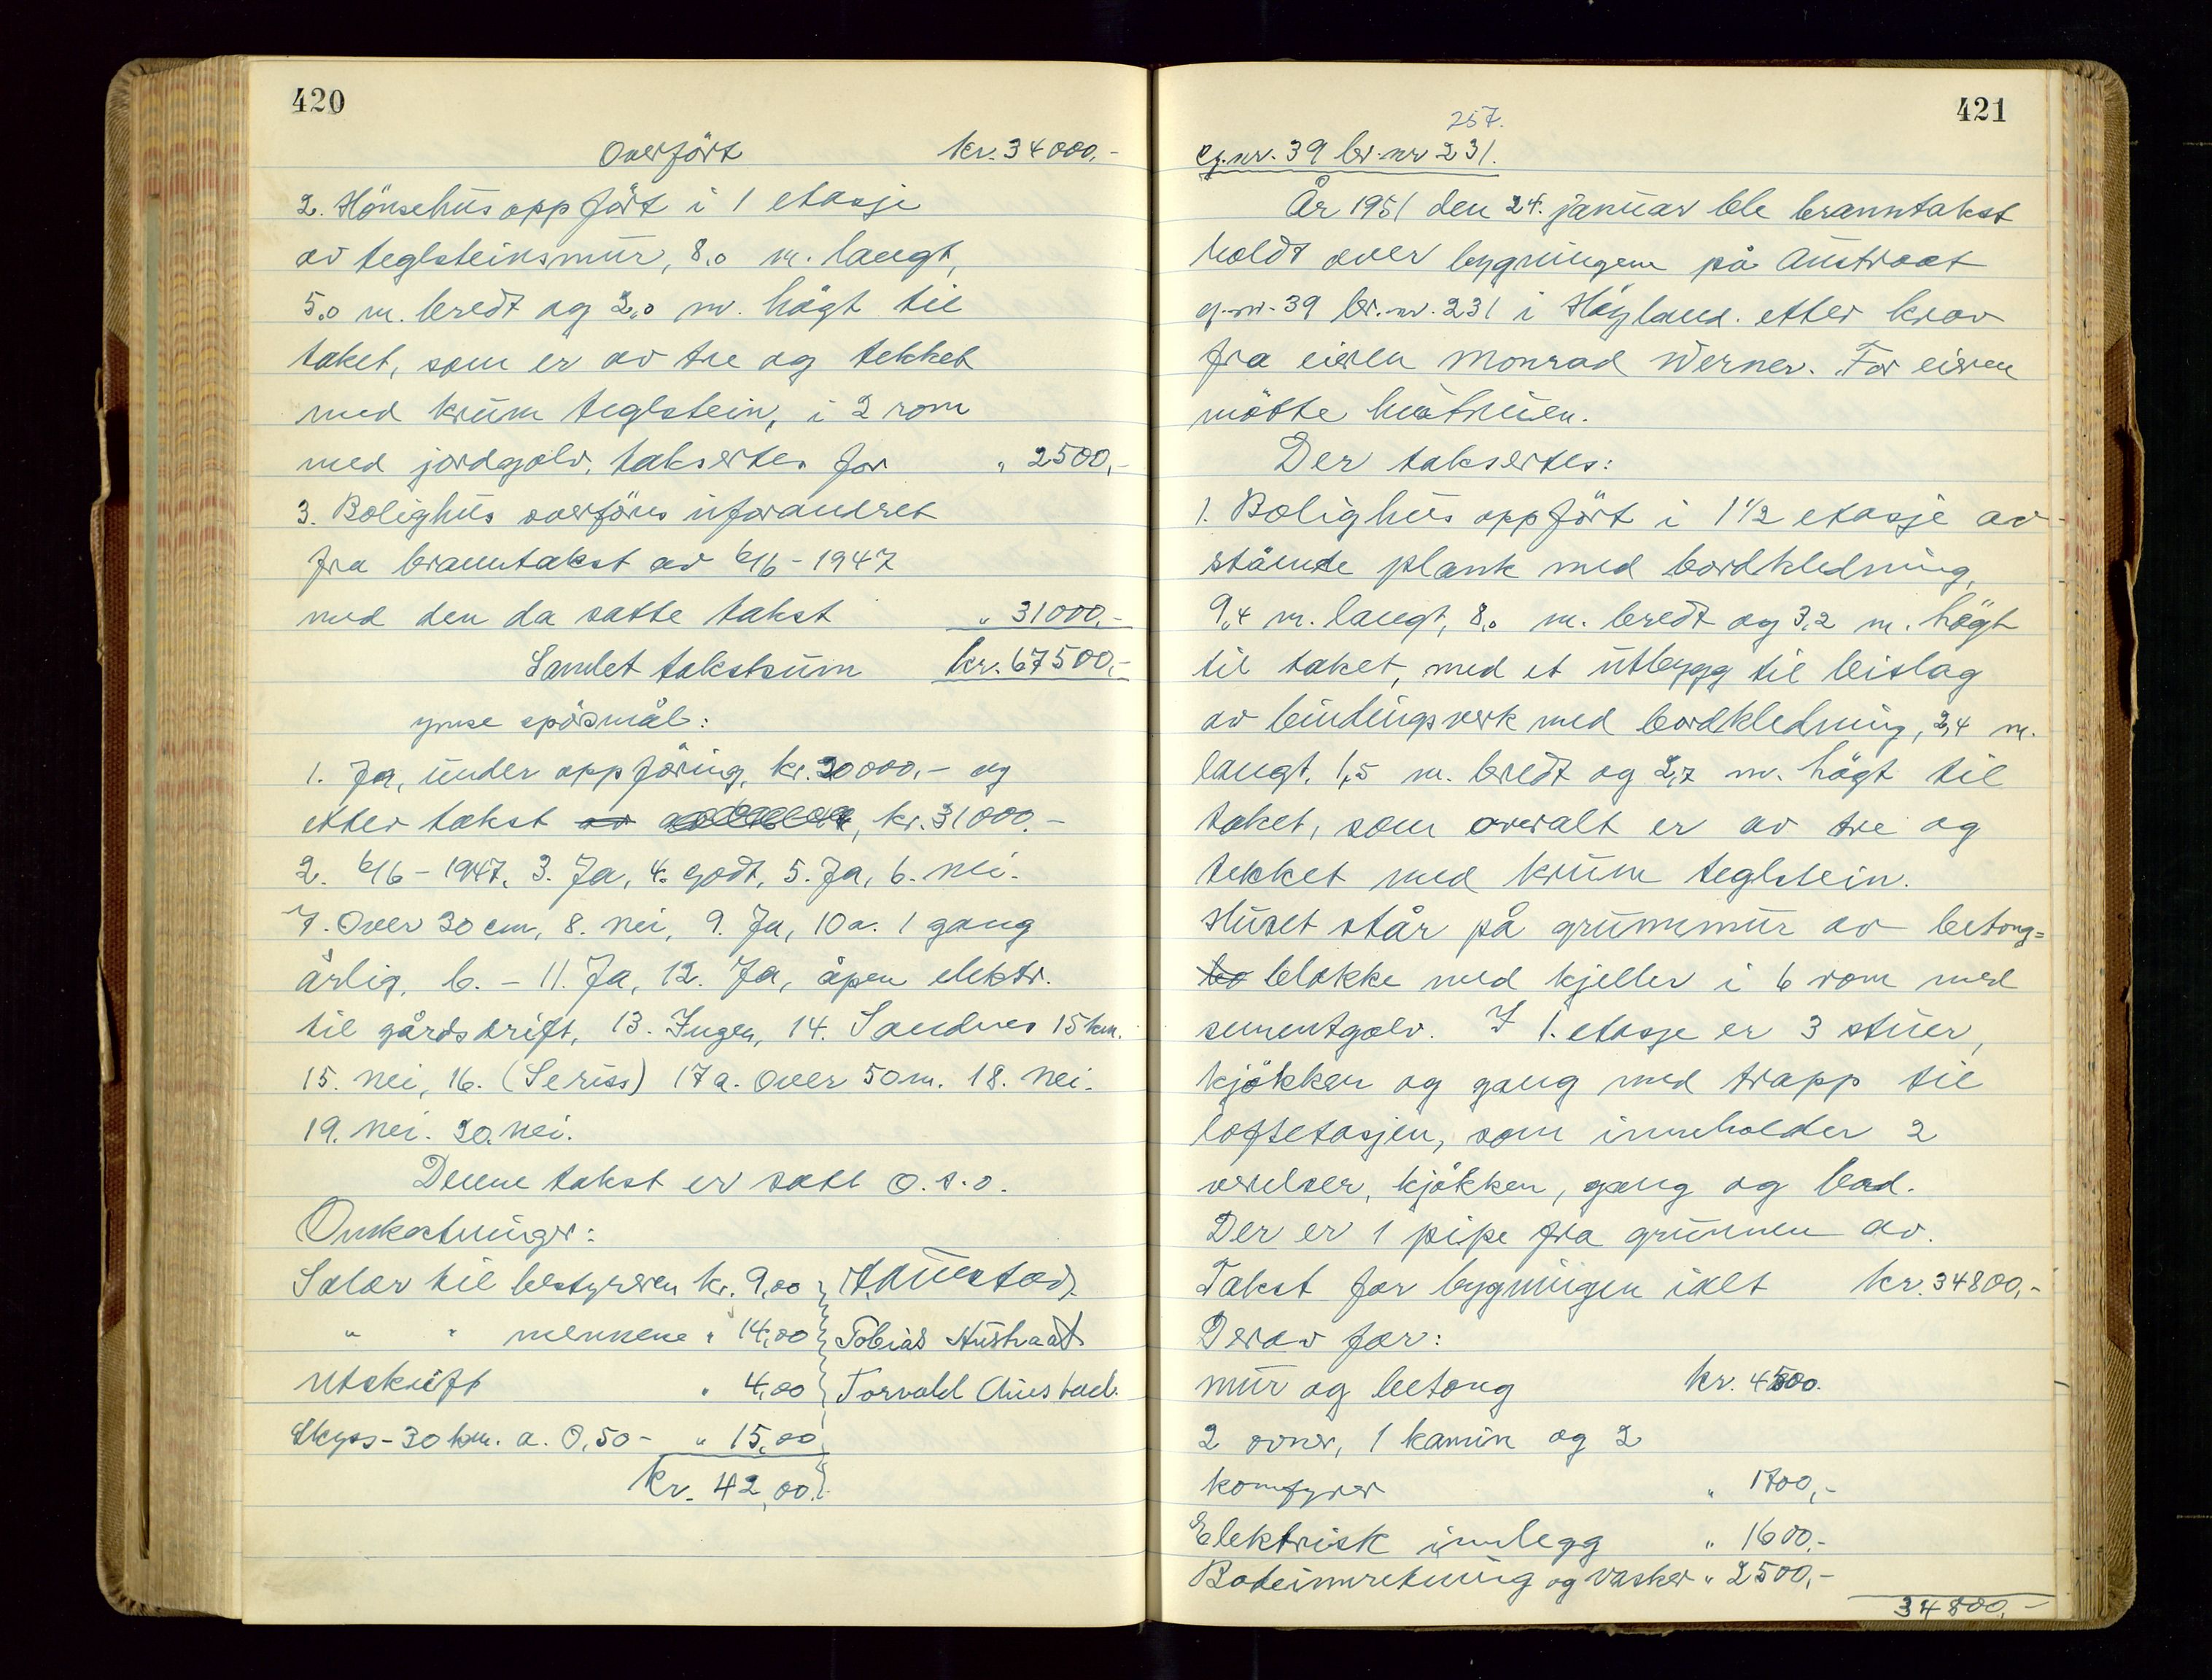 420
Overfört kr. 34000,-
2. Hönsehus oppfört i 1 etasje
av teglsteinsmur, 8,0 m. langt,
5,0 m. bredt og 2,0 m. högt til
taket, som er av tre og tekket
med krum teglstein, i 2 rom
med jordgolv, taksertes for " 2500,-
3. Bolighus overföres uforandret
fra branntakst av 6/6-1947
med den da satte takst " 31000,-
Samlet takstsum kr. 67500,-
ymse spörsmål:
1. Ja, under oppföring, kr. 20000,- og
etter takst av, kr. 31000.-
2. 6/6-1947, 3. Ja, 4. godt, 5. Ja, 6. nei.
7. Over 30 cm, 8. nei, 9. Ja, 10a. 1 gang
årlig, b. - 11. Ja, 12. Ja, åpen elektr.
til gårdsdrift, 13. Ingen, 14. Sandnes 15 km.
15. nei, 16. (Seriss) 17a. Over 50 m. 18. nei.
19. nei. 20. nei.
Denne takst er satt O.s.v.
Omkostninger:
Salær til bestyreren kr. 9,00
" " mennene " 14,00 Tobias Austraat
Utskrift " 4,00 Torvald Auestad.
Skyss-30 km. a. 0,50- " 15,00
kr. 42,00.
421
257.
g.nr. 39 br.nr 231.
År 1951 den 24. januar ble branntakst
holdt over bygningene på Austraat
g.nr. 39 br.nr. 231 i Höyland. etter krav
fra eieren Monrad Werner. For eieren
mötte hustruen.
Der taksertes:
1. Bolighus oppfört i 1 1/2 etasje av
stående plank med bordkledning,
9,4 m. langt, 8,0 m. bredt og 3,2 m. högt
til taket, med et utbygg til bislag
av bindingsverk med bordkledning, 2,4 m.
langt, 1,5 m. bredt og 2,7 m. högt til
taket, som overalt er av tre og
tekket med krum teglstein.
Huset står på grunnmur av betong=
bo blokke med kjeller i 6 rom med
sementgolv. I 1. etasje er 3 stuer,
kjökken og gang med trapp til
loftetasjen, som inneholder 2
værelser, kjökken, gang og bad.
Der er 1 pipe fra grunnen av.
Takst for bygningen ialt kr. 34800,-
Derav for:
mur og betong kr. 4500.
2 ovner, 1 kamin og 2
komfyrer " 1700,-
Elektrisk innlegg " 1600.-
Badeinnretning og vasker " 2500,-
34800,-